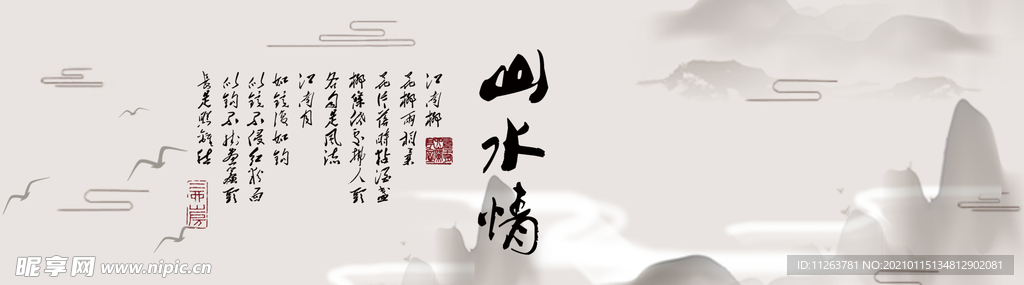 山水情
江南柳
花柳兩相柔
花片落時黏酒盞
柳條低處拂人頭
各自是風流
江南月
如鏡復如鈎
似鏡不侵紅粉面
似鈎不掛畫簾頭
長是照離愁
昵享网 www.nipic.cn
ID:11263781 NO:20210115134812902081